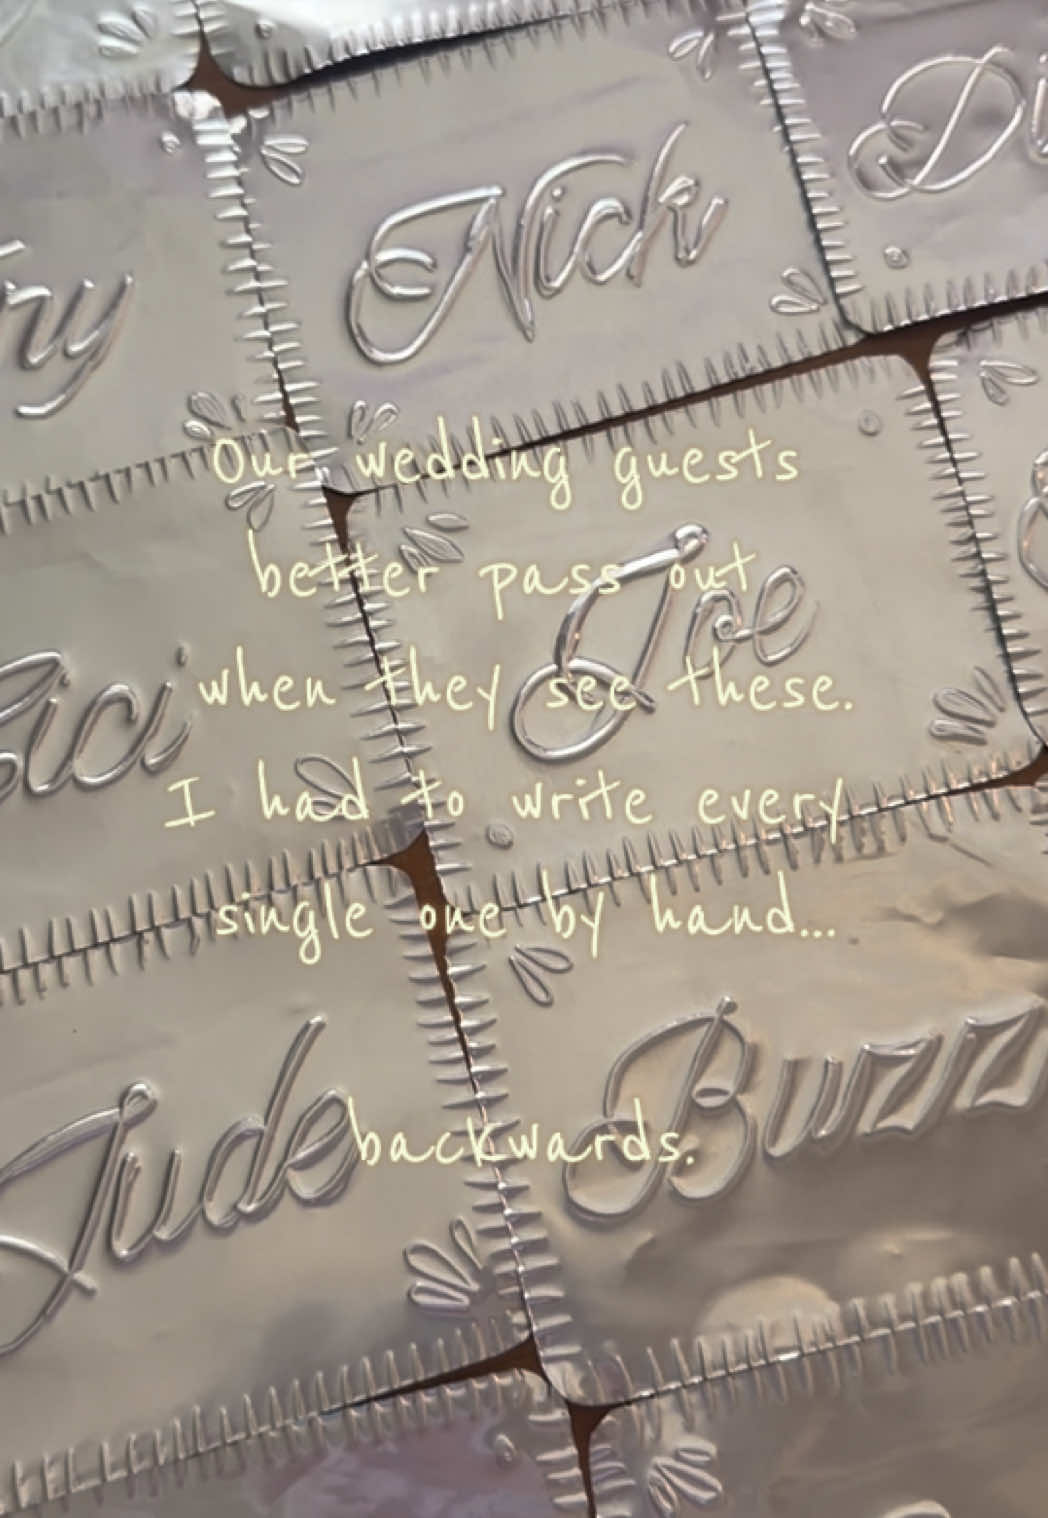 Nick
Di
ry
Our wedding guests
better pass out
Joe
when they see these.
ici
I had to write every
single one by hand...
Jude
Buzz
backwards.